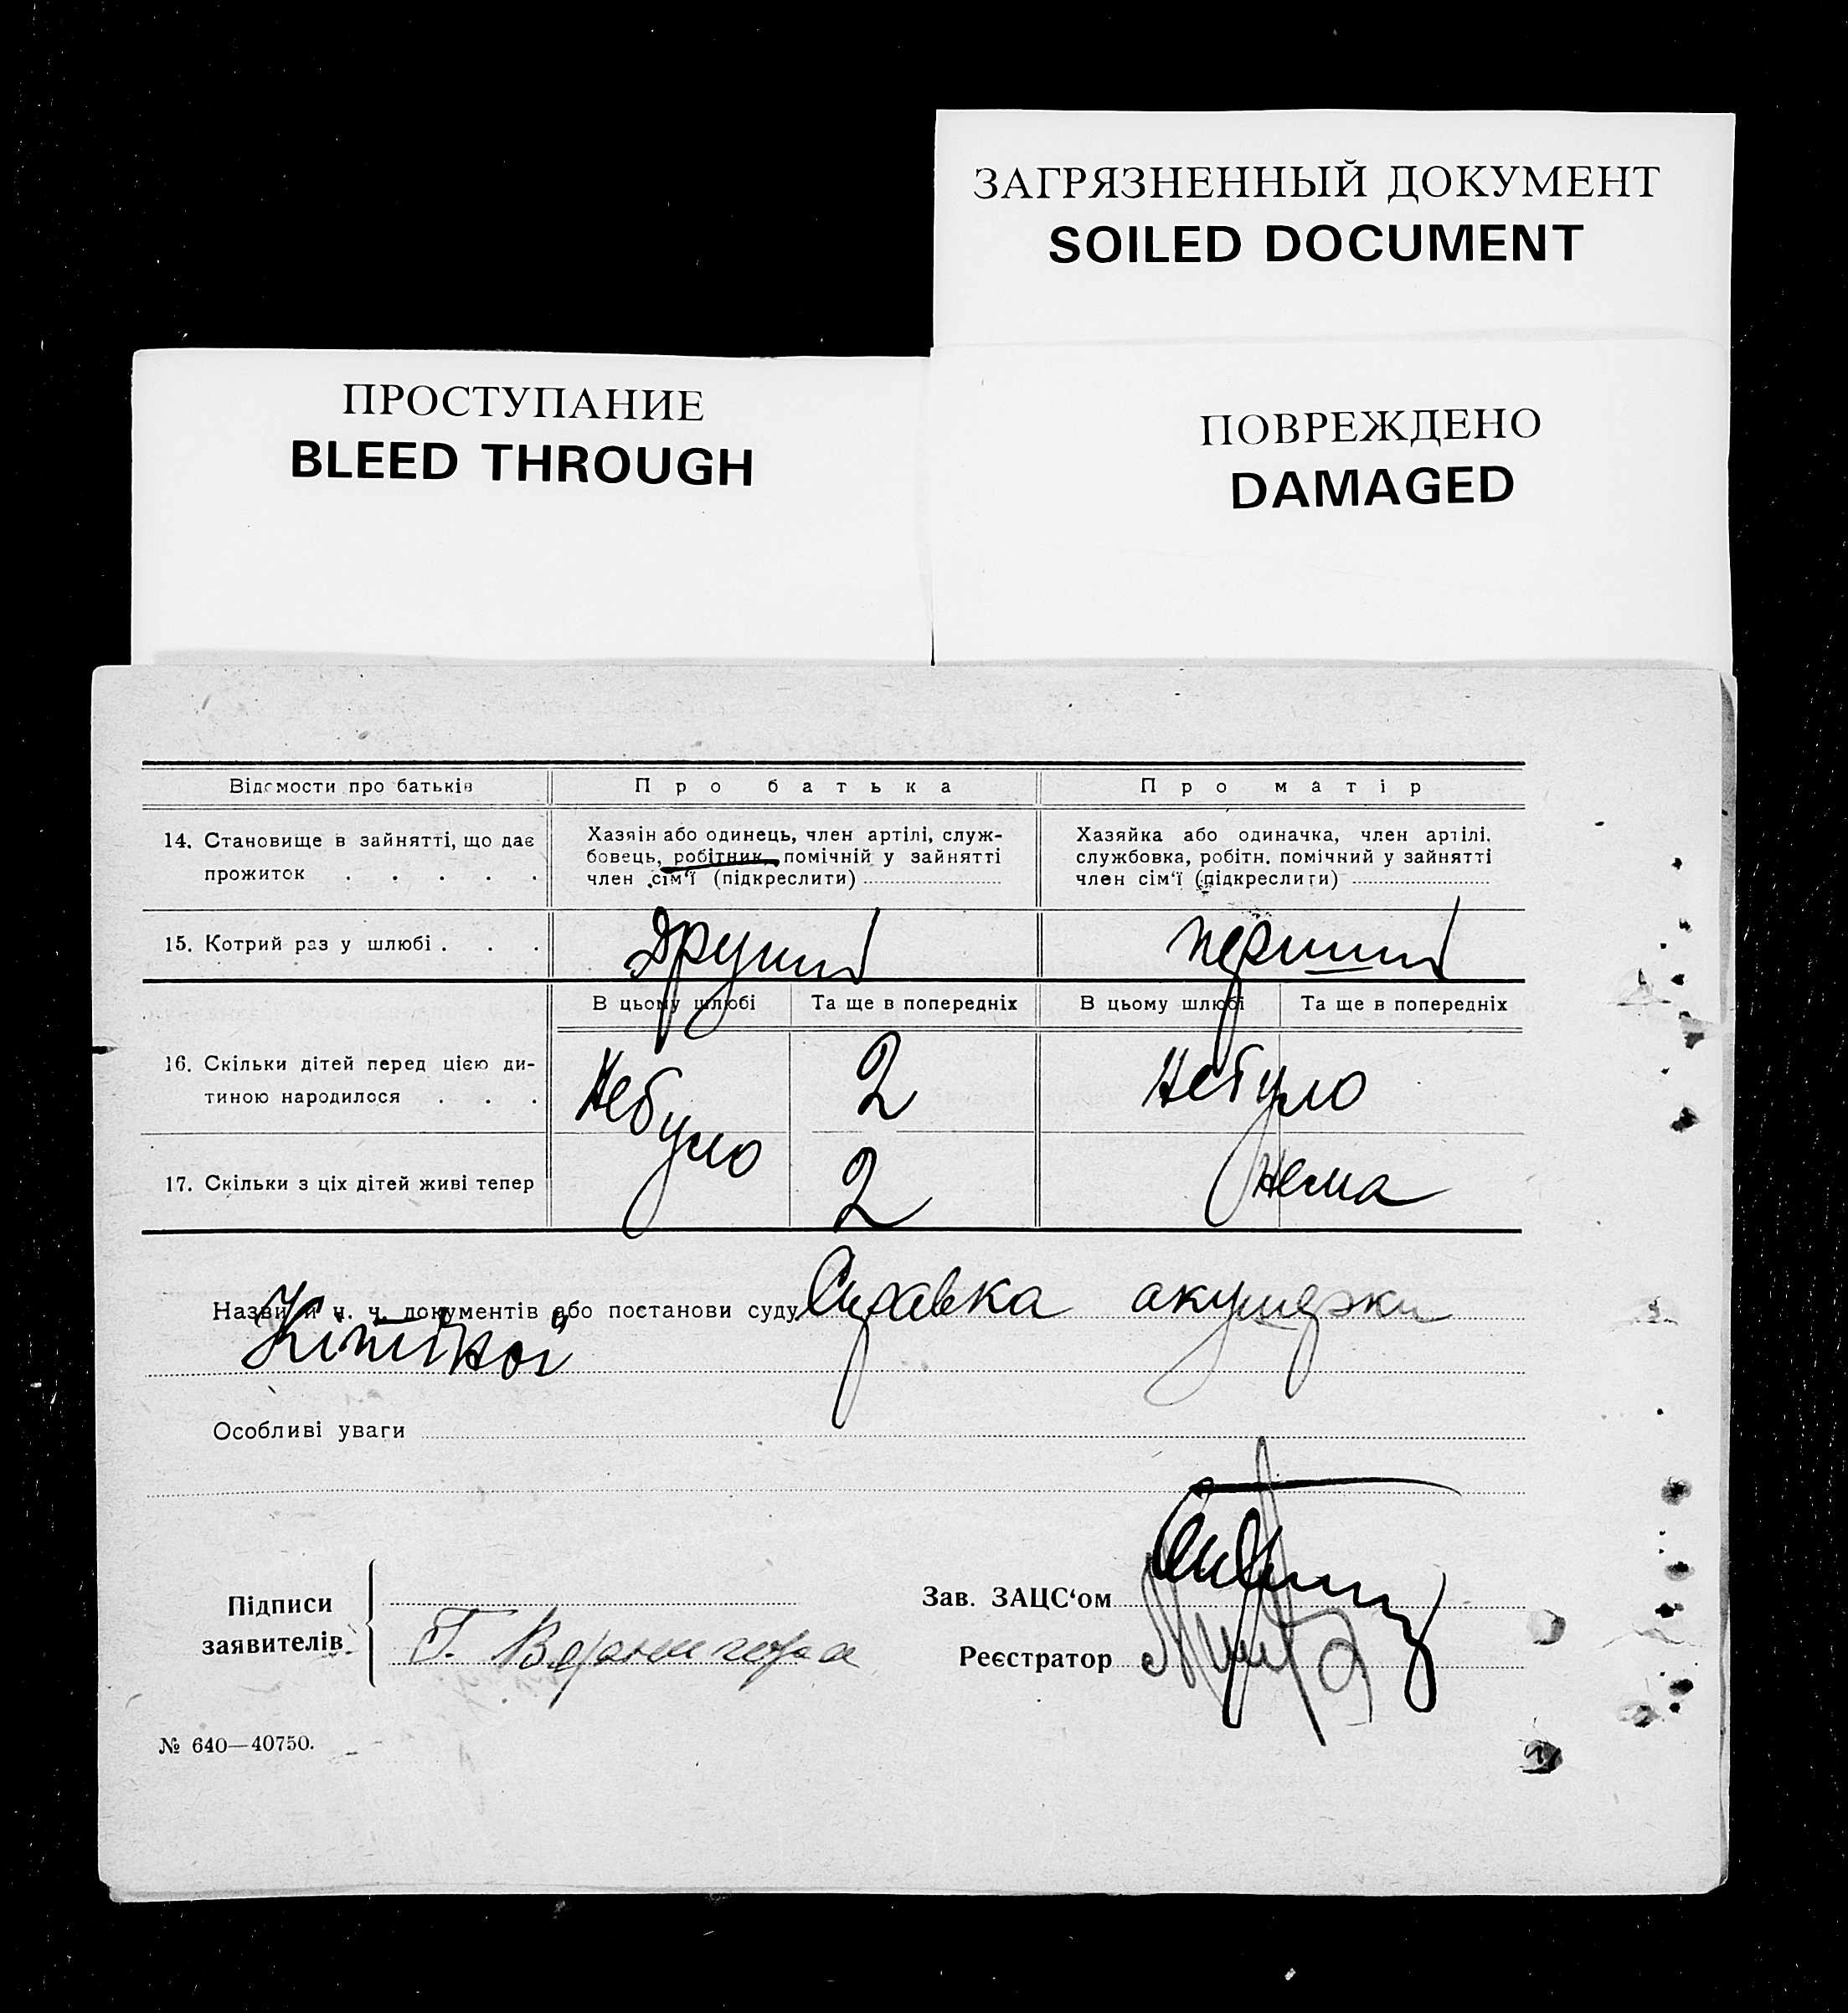 ЗАГРЯЗНЕННЫЙ ДОКУМЕНТ
SOILED DOCUMENT
ПРОСТУПАНИЕ
BLEED THROUGH
ПОВРЕЖДЕНО
DAMAGED
Відомости про батьків
Про батька
Про матір
14. Становище в зайнятті, що дає
прожиток . . . . .
Хазяін або одинець, член артілі, служ-
бовець, робітник, помічній у зайнятті
член сім'ї (підкреслити)
Хазяйка або одиначка, член артілі,
службовка, робітн. помічний у зайнятті
член сім'ї (підкреслити)
15. Котрий раз у шлюбі . . .
другий
перший
В цьому шлюбі
Та ще в попередніх
В цьому шлюбі
Та ще в попередніх
16. Скільки дітей перед цією ди-
тиною народилося . . .
Небуло
2
Небуло
17. Скільки з ціх дітей живі тепер
2
Нема
Назви й ч. ч. документів або постанови суду Справка акушерки
Особливі уваги
Підписи
заявителів
Г. Вернигора
Зав. ЗАЦС'ом
Реєстратор
№ 640—40750.